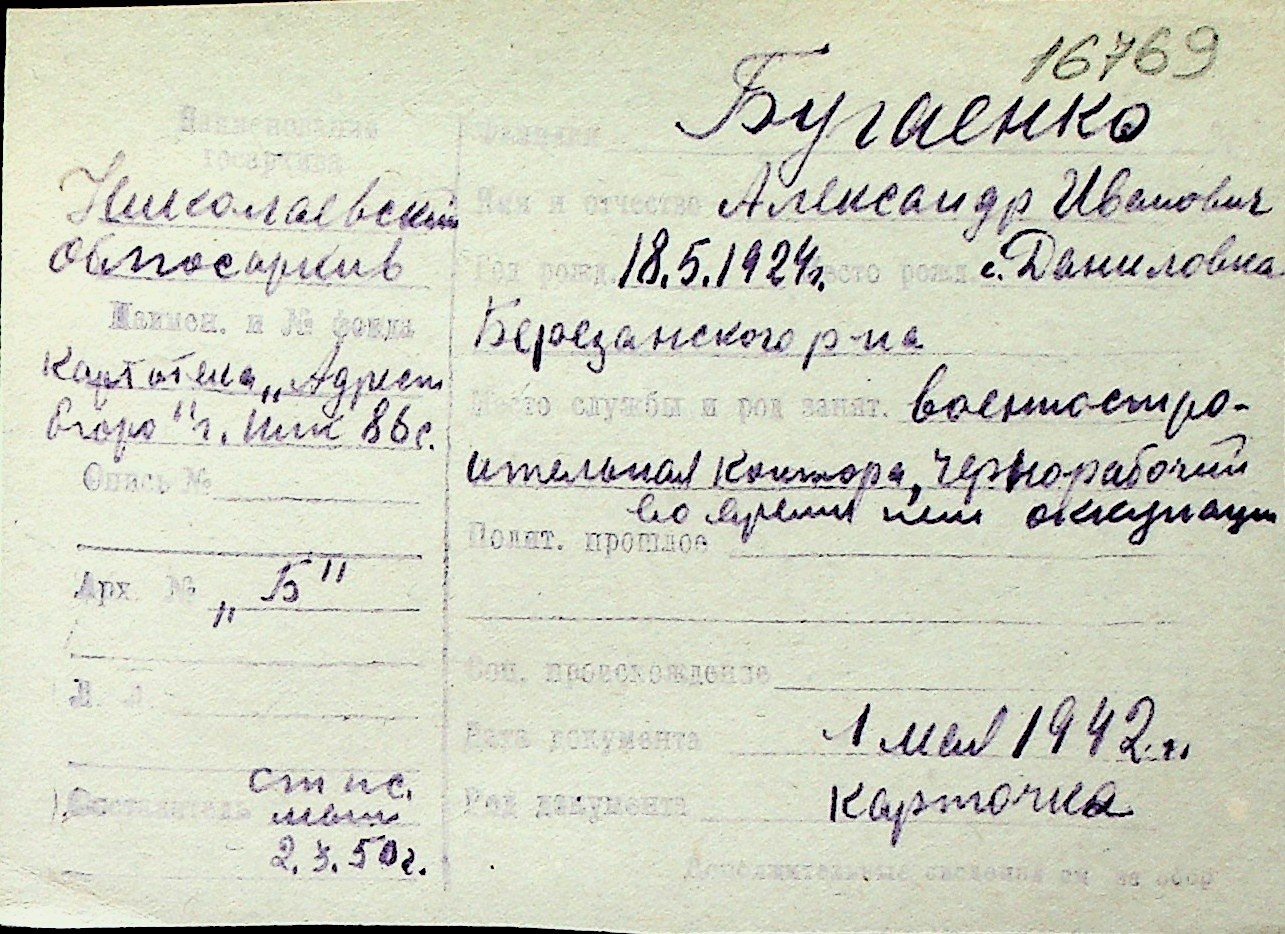 16769
Наименование
госархива
Николаевский
Облгосархив
Наимен. и № фонда
Картотека „Адресн
бюро" г. Ник 86с.
Опись №
Арх. № „Б"
Л. л.
Составитель ст нс.
2.3.50г.
Фамилия Бугаенко
Имя и отчество Александр Иванович
Год рожд. 18.5.1924г. Место рожд. с. Даниловка
Березанского р-на
Место службы и род занят. военностро-
ительная контора, чернорабочий
во время нем оккупации
Полит. прошлое
Соц. происхождение
Дата документа 1 мая 1942 г.
Род документа карточка
Дополнительные сведения см на обор